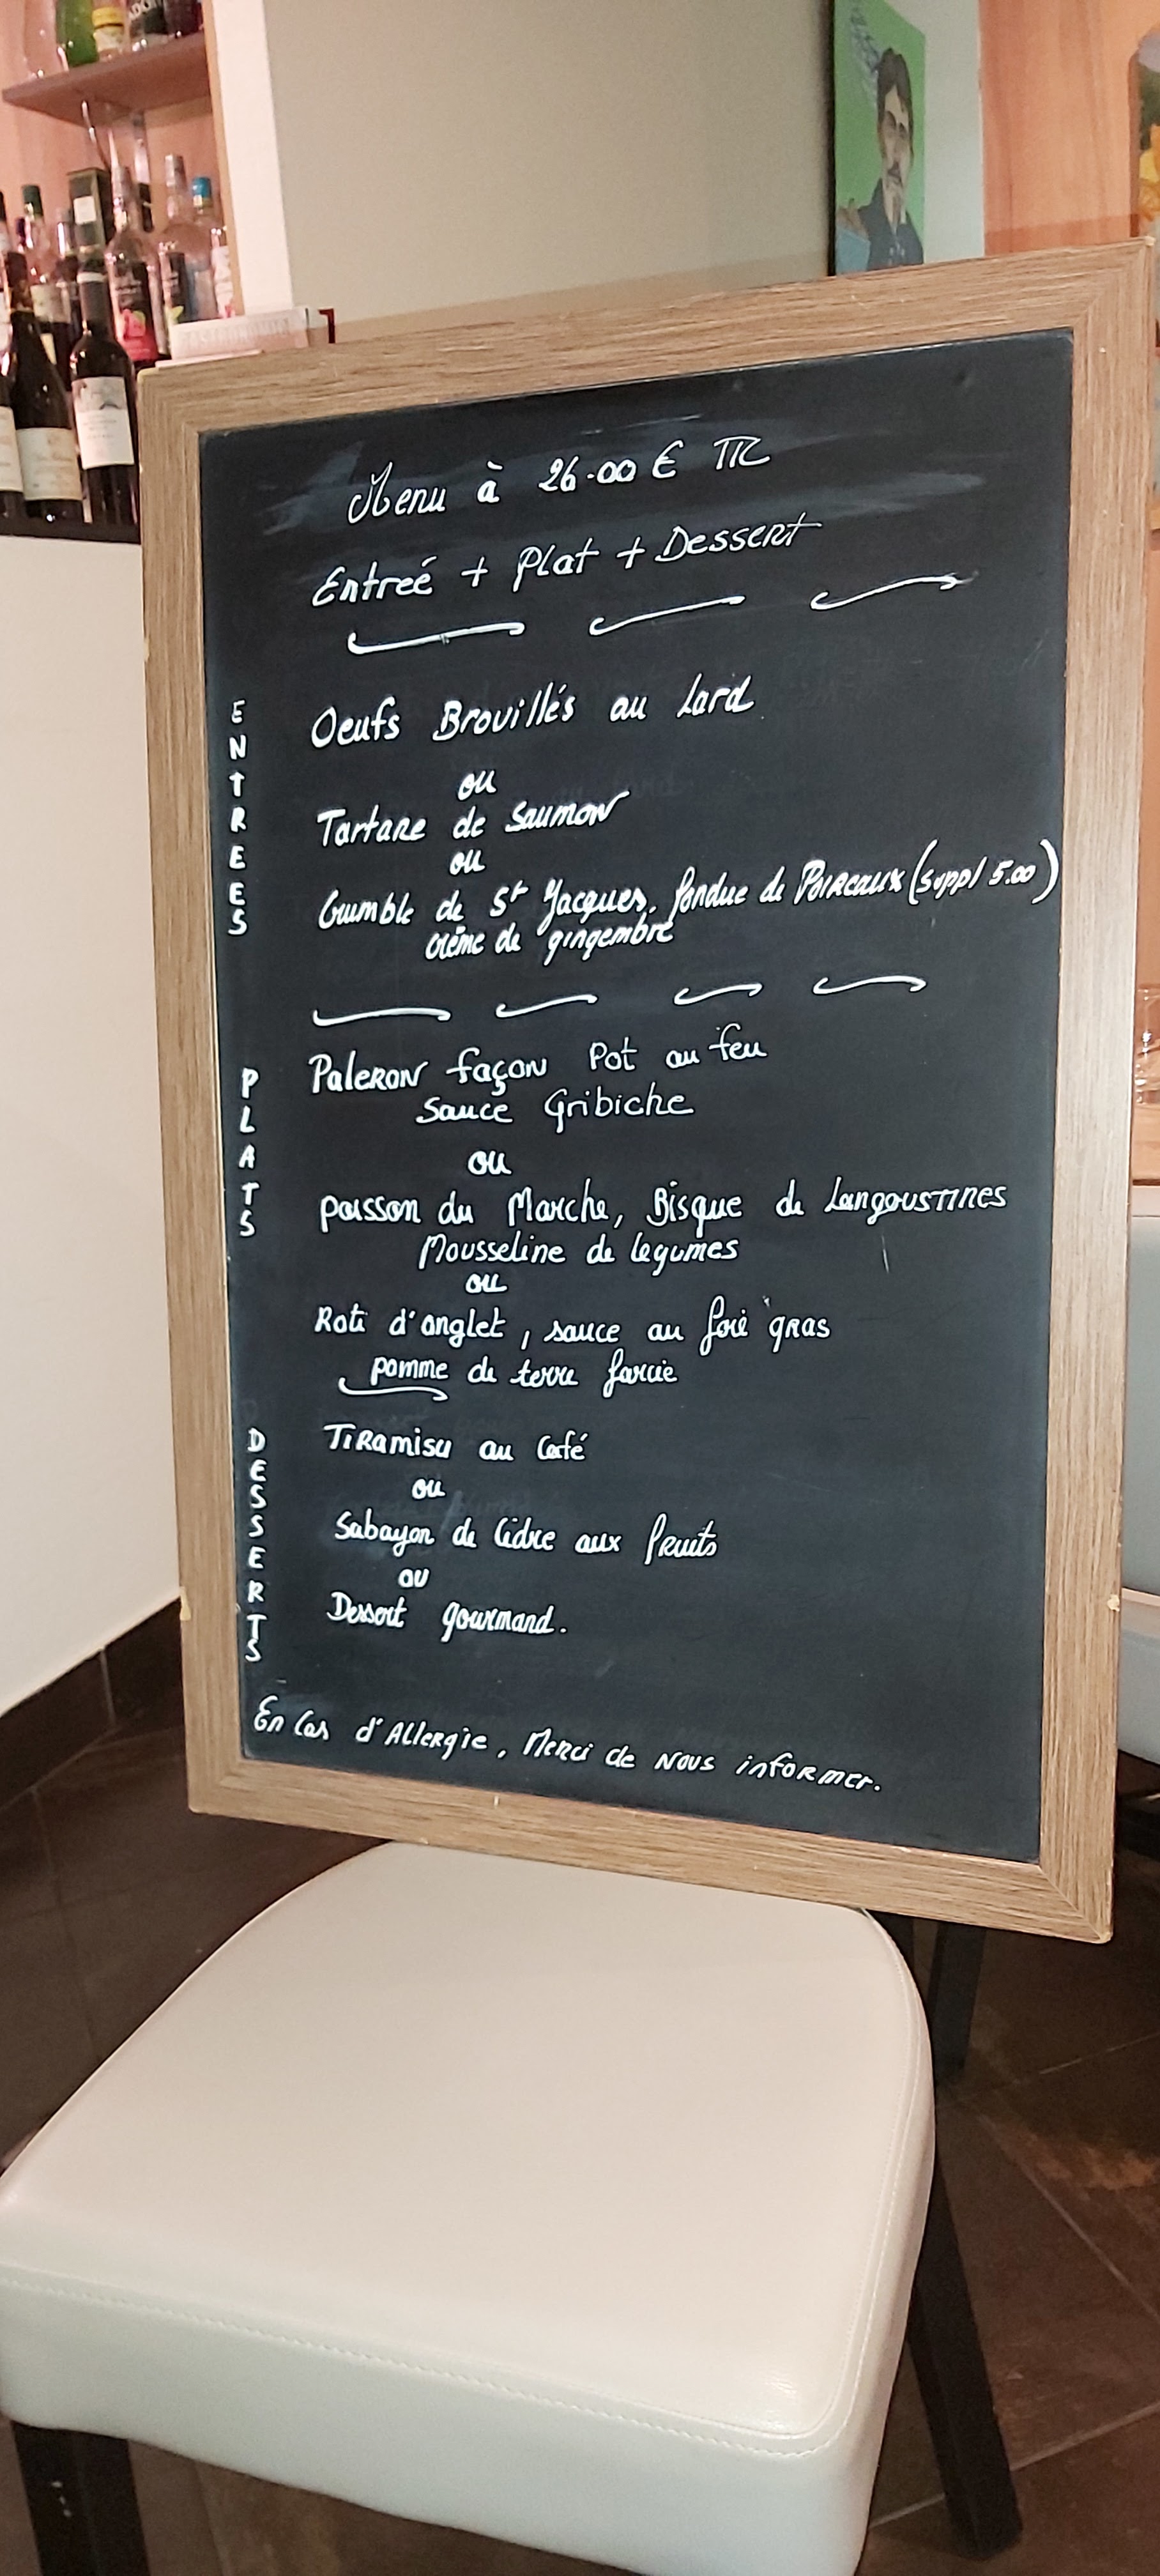 Menu à 26.00 € TTC
Entreé + Plat + Dessert
ENTREES
Oeufs Brouillés au Lard
ou
Tartare de Saumon
ou
Crumble de St Jacques, fondue de Poireaux (suppl 5.00)
crème de gingembre
PLATS
Paleron façon Pot au feu
Sauce Gribiche
ou
poisson du Marche, Bisque de Langoustines
Mousseline de legumes
ou
Roti d'onglet, sauce au foie gras
pomme de terre farcie
DESSERTS
Tiramisu au Café
ou
Sabayon de Cidre aux fruits
ou
Dessert gourmand.
En Cas d'Allergie, Merci de Nous informer.